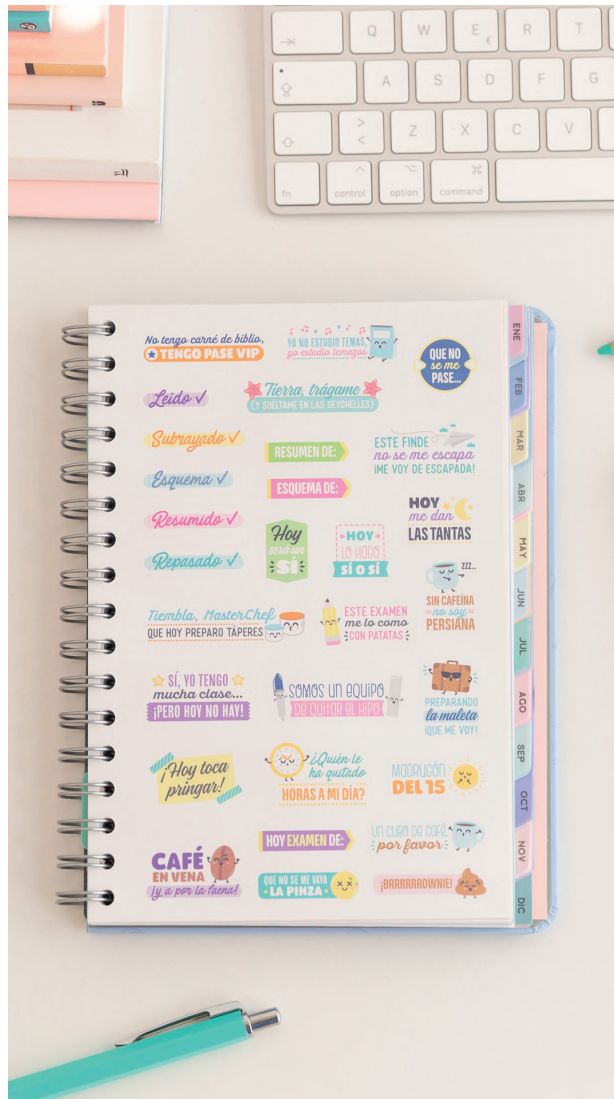 Q W E R T
€
A S D F G
>
<
Z X C V
fn control option command
No tengo carné de biblio,
TENGO PASE VIP
YO NO ESTUDIO TEMAS,
yo estudio temazos
QUE NO
se me
PASE...
Leído ✓
Tierra, trágame
(Y SUÉLTAME EN LAS SEYCHELLES)
Subrayado ✓
RESUMEN DE:
ESTE FINDE
no se me escapa
¡ME VOY DE ESCAPADA!
Esquema ✓
ESQUEMA DE:
Resumido ✓
HOY
me dan
LAS TANTAS
Repasado ✓
Hoy
será un
SÍ
HOY
LO HAGO
SÍ O SÍ
ZZZ...
SIN CAFEÍNA
no soy
PERSIANA
Tiembla, MasterChef
QUE HOY PREPARO TÁPERES
ESTE EXAMEN
me lo como
CON PATATAS
SÍ, YO TENGO
mucha clase...
¡PERO HOY NO HAY!
SOMOS UN EQUIPO
DE QUITAR EL HIPO
PREPARANDO
la maleta
¡QUE ME VOY!
¡Hoy toca
pringar!
¿Quién le
ha quitado
HORAS A MI DÍA?
MADRUGÓN
DEL 15
HOY EXAMEN DE:
UN CUBO DE CAFÉ,
por favor
CAFÉ
EN VENA
¡y a por la faena!
QUE NO SE ME VAYA
LA PINZA
¡BRRRRROWNIE!
ENE
FEB
MAR
ABR
MAY
JUN
JUL
AGO
SEP
OCT
NOV
DIC